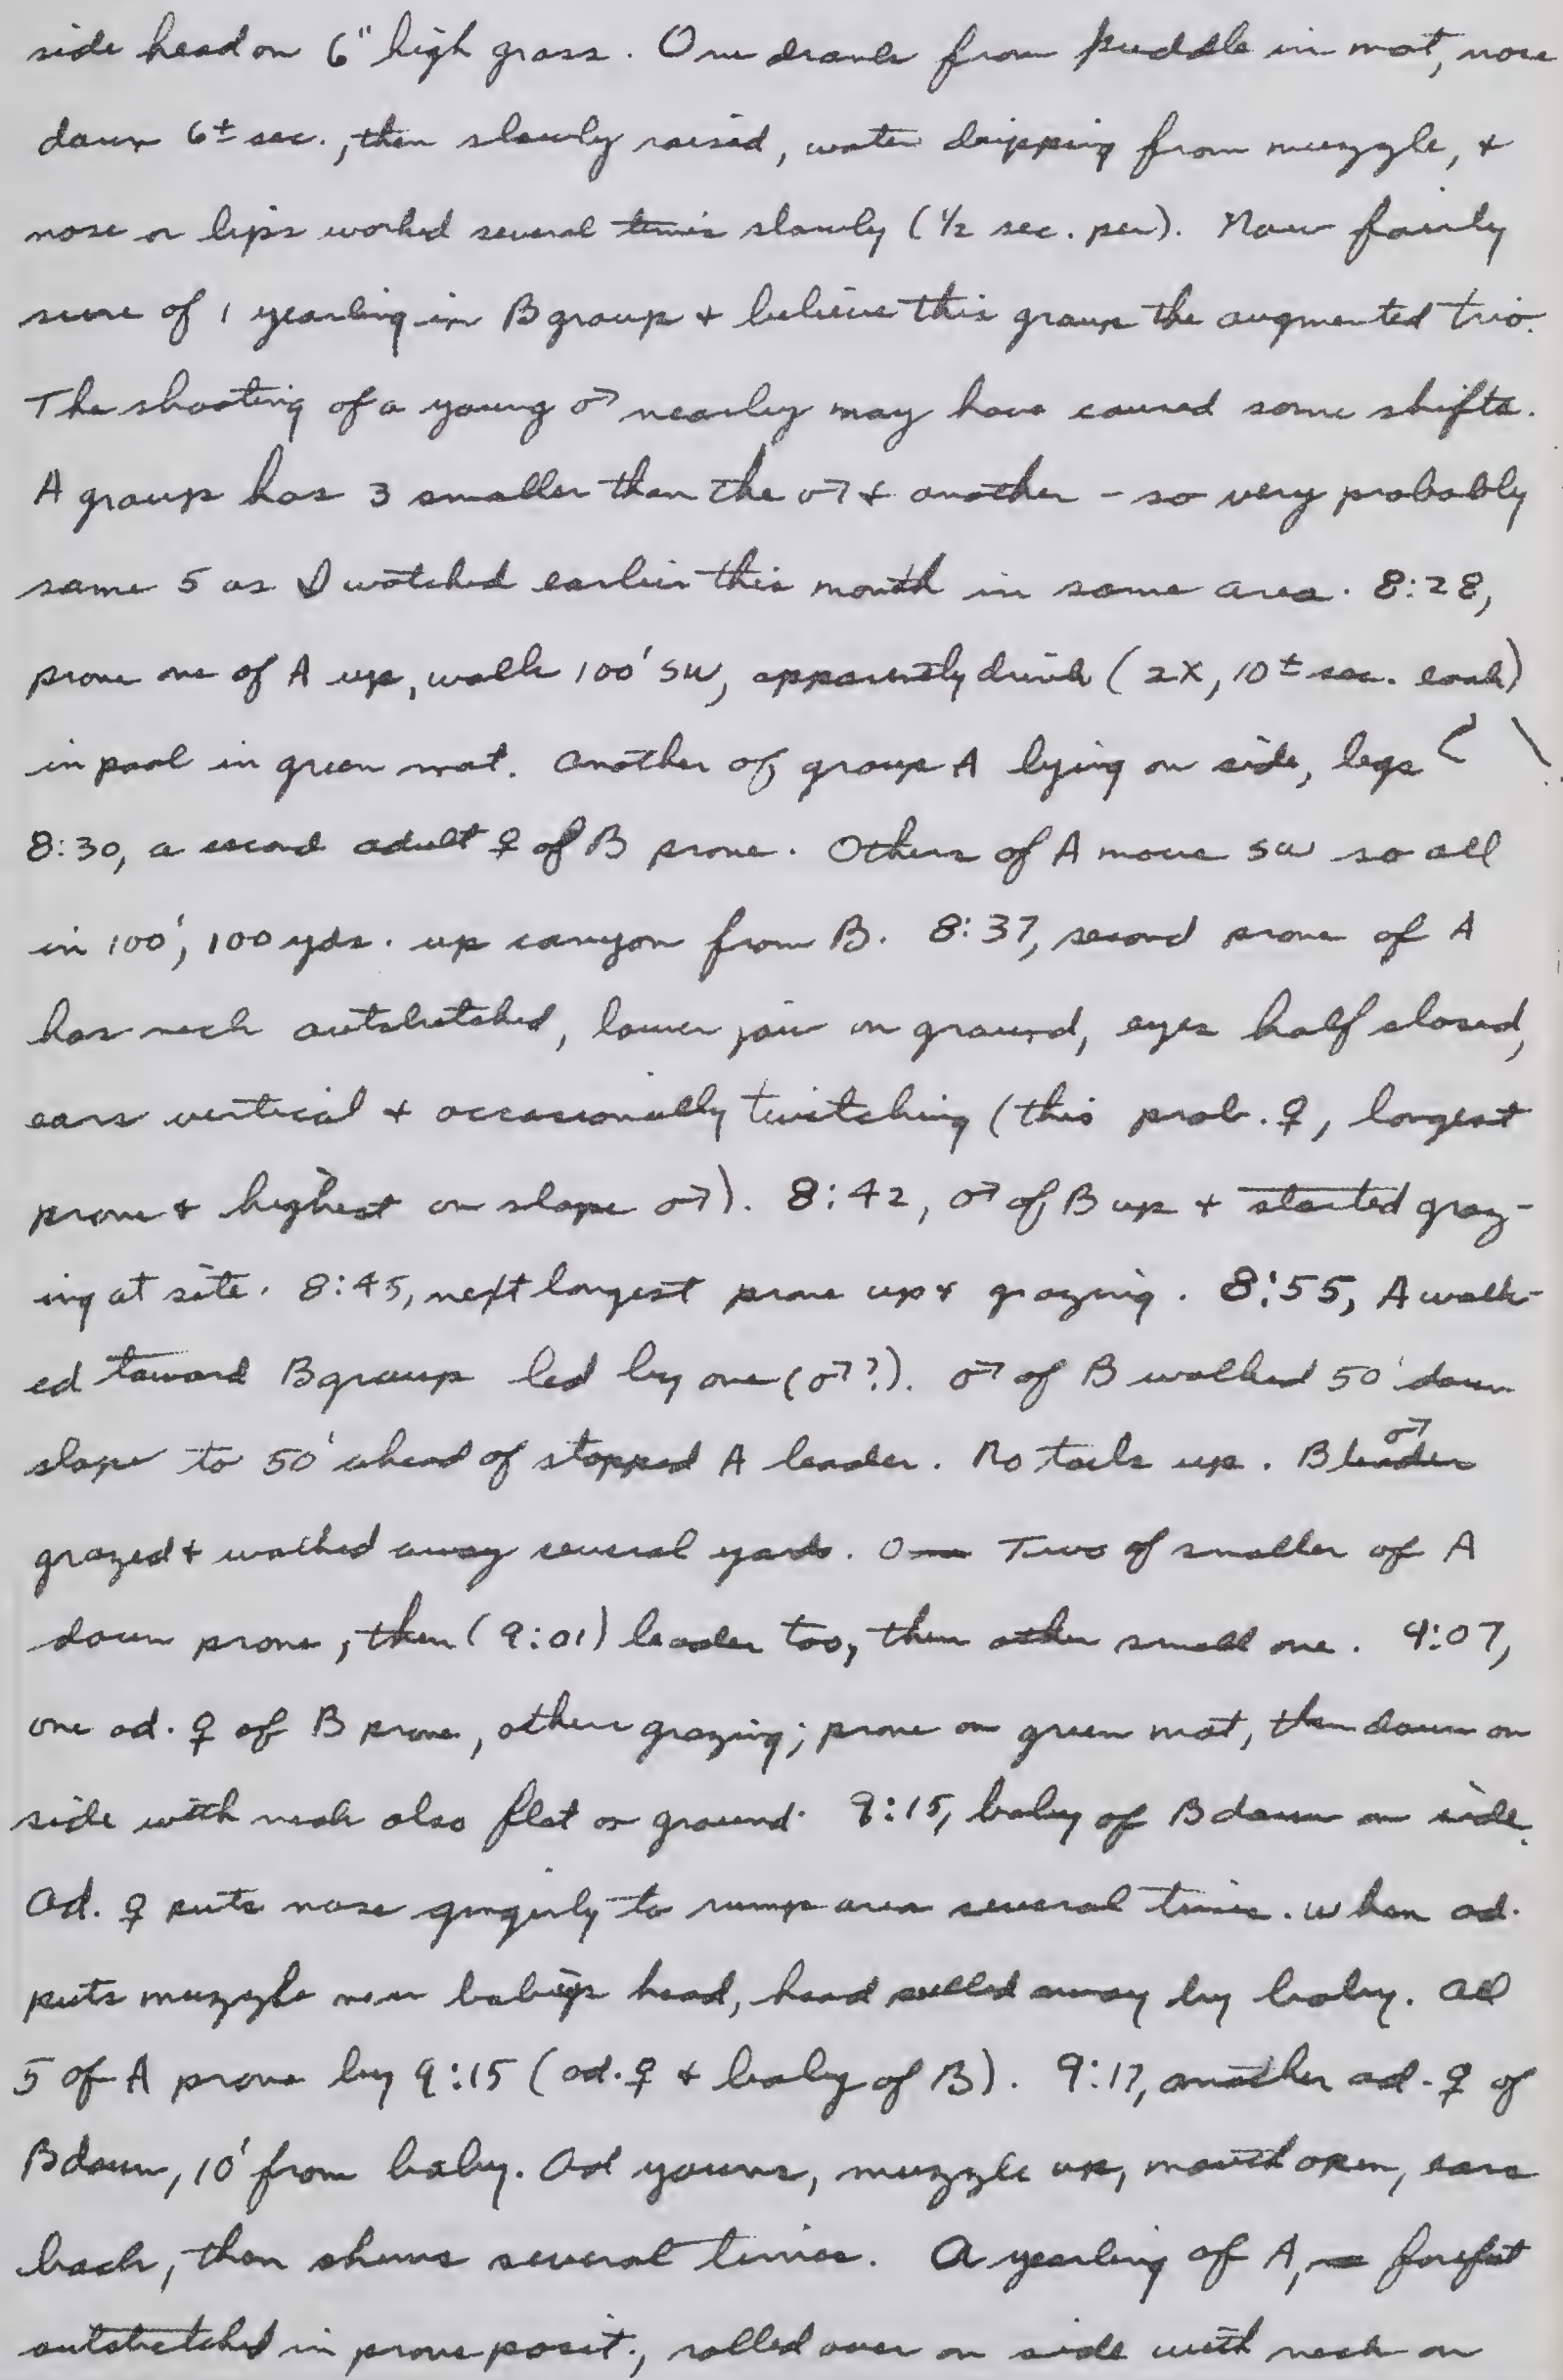 side head on 6" high grass. One drank from puddle in mat, nose
down 6± sec., then slowly raised, water dripping from muzzle, +
nose or lips worked several times slowly (1/2 sec. per). Now fairly
sure of 1 yearling in B group + believe this group the augmented trio.
The shooting of a young ♂ nearby may have caused some shifts.
A group has 3 smaller than the ♂ + another – so very probably
same 5 as I watched earlier this month in same area. 8:28,
prone one of A up, walk 100' SW, apparently drink (2X, 10± sec. each)
in pool in green mat. Another of group A lying on side, legs
8:30, a second adult ♀ of B prone. Others of A move SW so all
in 100', 100 yds. up canyon from B. 8:37, second prone of A
has neck outstretched, lower jaw on ground, eyes half closed,
ears vertical + occasionally twitching (this prob. ♀, longest
prone + highest on slope ♂). 8:42, ♂ of B up + started graz-
ing at site. 8:45, next longest prone up + grazing. 8:55, A walk-
ed toward B group led by one (♂?). ♂ of B walked 50' down
slope to 50' ahead of stopped A leader. No tails up. B leader ♂
grazed + walked away several yards. One Two of smaller of A
down prone, then (9:01) leader too, then other small one. 9:07,
one ad. ♀ of B prone, others grazing; prone on green mat, then down on
side with neck also flat on ground. 9:15, baby of B down on side.
Ad. ♀ puts nose gingerly to rump area several times. When ad.
puts muzzle near baby's head, head pulled away by baby. All
5 of A prone by 9:15 (ad. ♀ + baby of B). 9:17, another ad. ♀ of
B down, 10' from baby. Ad yawns, muzzle up, mouth open, ears
back, then chews several times. A yearling of A, forefeet
outstretched in prone posit., rolled over on side with neck on